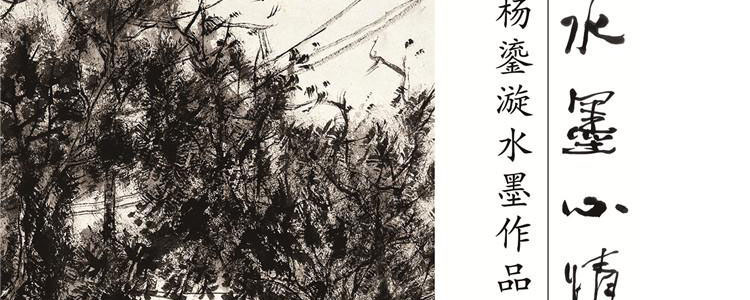 水墨心情
杨鎏漩水墨作品